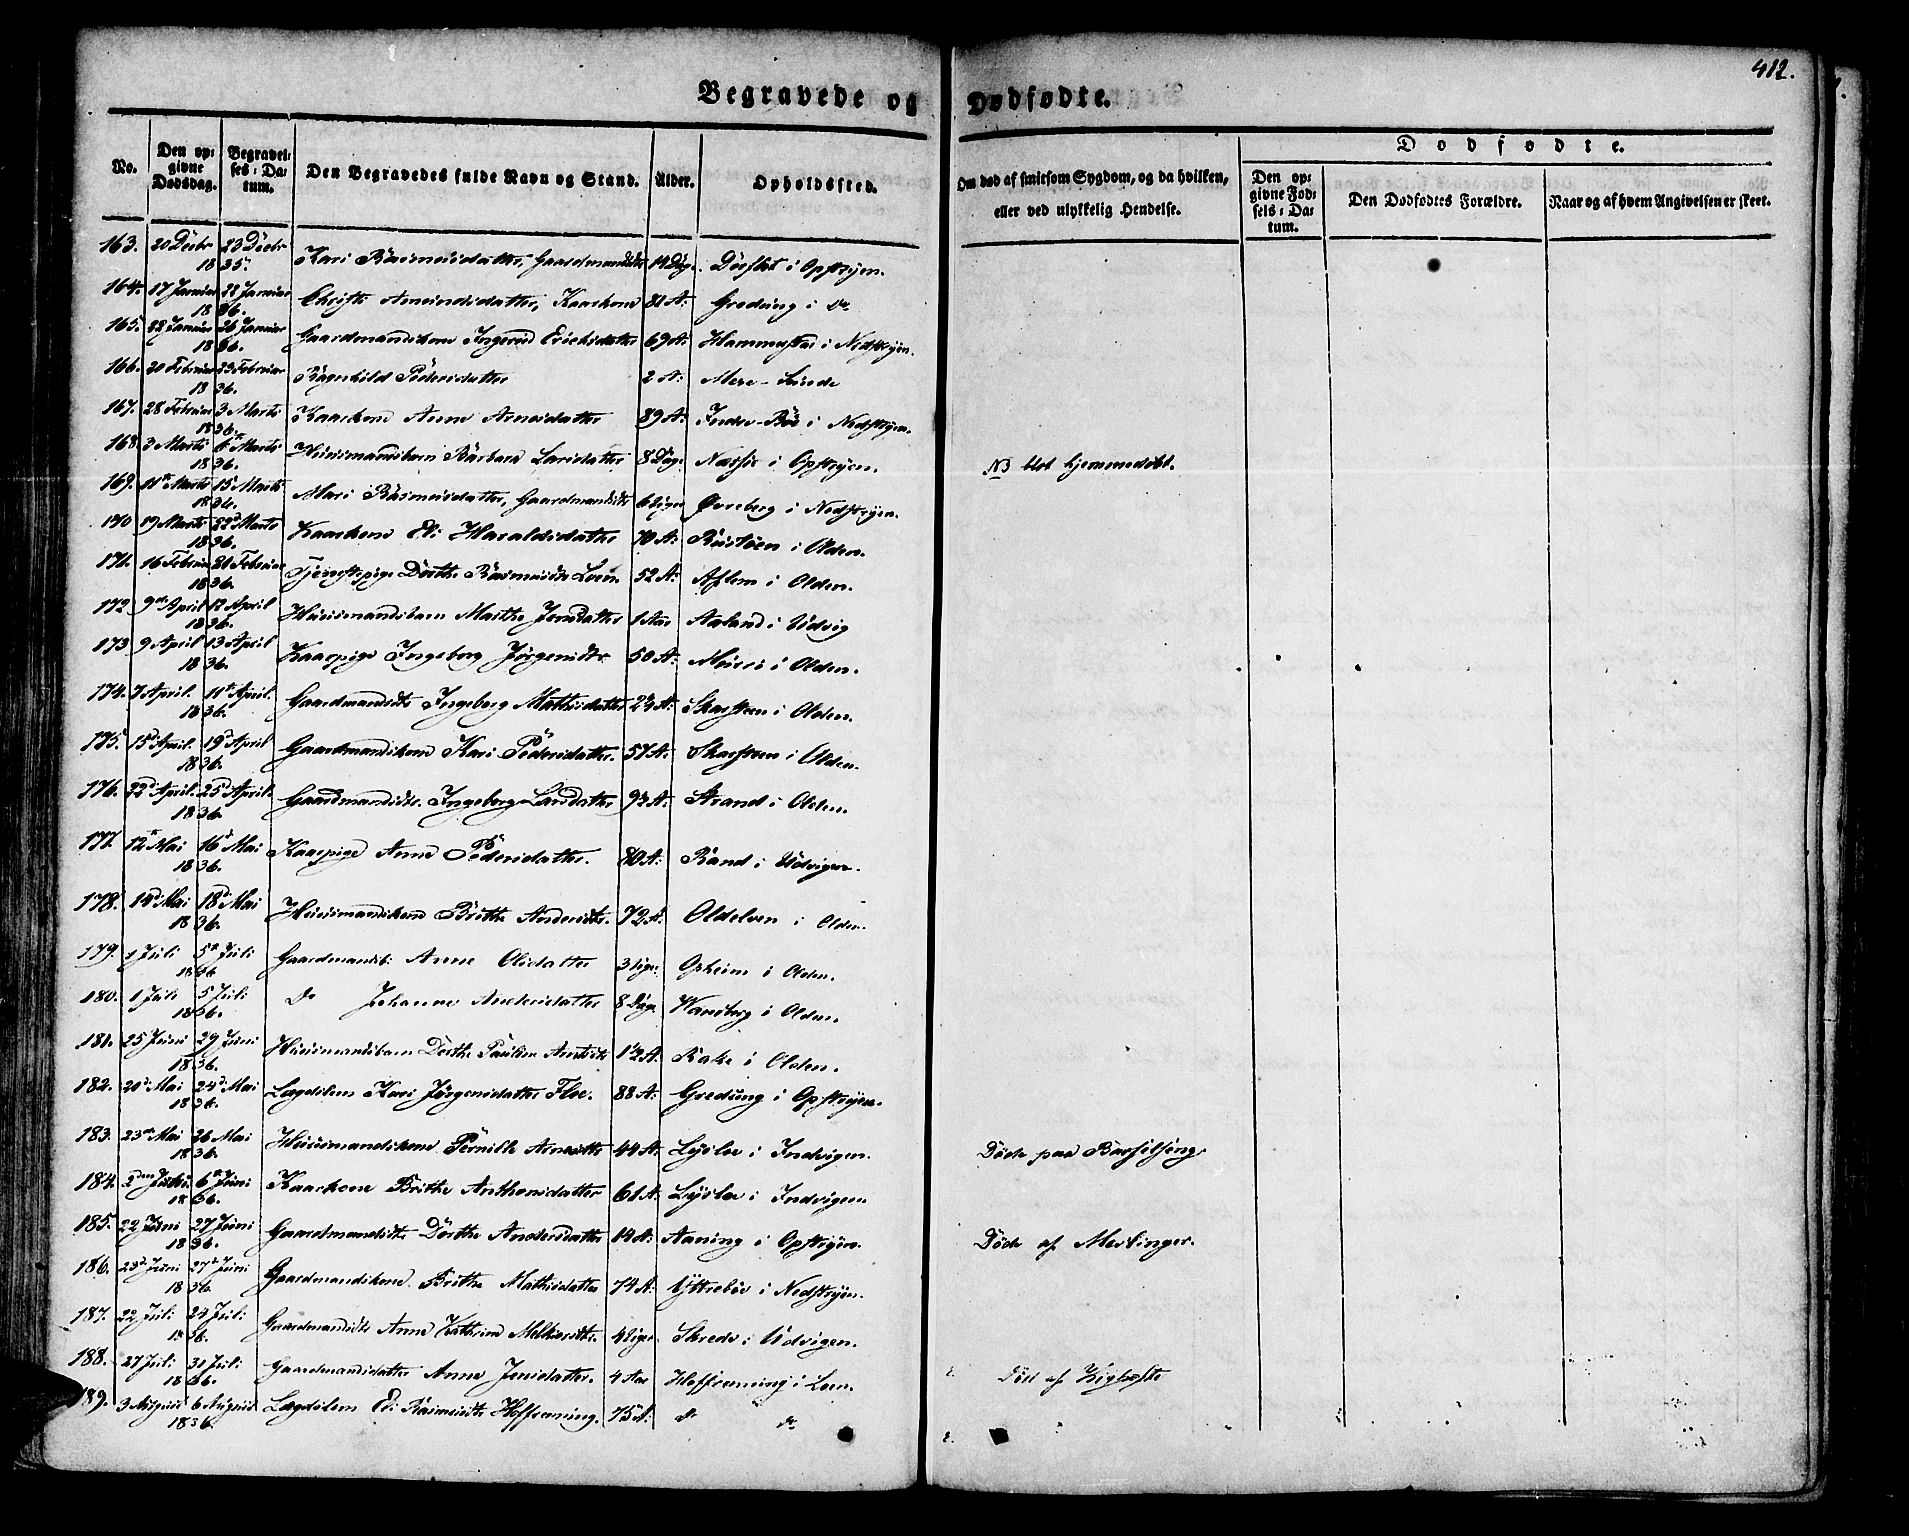 412.
Begravede og Dødfødte.
No. Den opgivne Dødsdag. Begravelses-Datum. Den Begravedes fulde Navn og Stand. Alder. Opholdssted. Om død af smitsom Sygdom, og da hvilken, eller ved ulykkelig Hendelse. Dødfødte. Den opgivne Fødsels-Datum. Den Dødfødtes Forældre. Naar og af hvem Angivelsen er skeet.
163. 20 Decbr 23 Decbr 1835. Kari Rasmusdatter, Gaardmandsdtr 14 Dage. i Opstryen.
164. 17 Januar 22 Januar 1836. Christi Amundsdatter, Kaarkone 81 A: Greding i do
165. 22 Januar 26 Januar 1836. Gaardmandskone Ingerid Erichsdatter 69 A: Hammerstad i Nedstryen.
166. 20 Februar 23 Februar 1836. Ragnhild Pedersdatter 2 A: Mere-Sunde
167. 28 Februar 3 Marts 1836. Kaarkone Anne Arnesdatter 89 A: Indre-Böe i Nedstryen.
168. 3 Marts 6te Marts 1836. Huusmandsbarn Barbara Larsdatter 8 Dage Næsje i Opstryen. NB blot hjemmedöbt.
169. 11te Marts 15 Marts 1836. Mari Rasmusdatter, Gaardmandsdtr 6 Uger Øvreberg i Nedstryen.
170 19 Marts 22d Marts 1836. Kaarkone Eli Haraldsdatter 70 A: Rustöen i Olden.
171. 16 Februar 20 Februar 1836. Tjenestepige Dorthe Rasmusdtr Loen 52 A: Aflem i Olden.
172. 9de April 12 April 1836. Huusmandsbarn Marthe Jensdatter 1 Aar Aaland i Udvig
173 9 April 13 April 1836. Kaarpige Ingeborg Jörgensdtr 50 A: Muri i Olden.
174. 7 April. 11te April. 1836. Gaardmandsdtr Ingeborg Mathisdatter 24 A: Skarsteen i Olden.
175. 15d April. 19d April 1836. Gaardmandskone Kari Pedersdatter. 57 A: Skarsteen i Olden.
176. 22d April. 25d April. 1836. Gaardmandsdtr. Ingeborg Larsdatter 93 A: Strand i Olden.
177. 12te Mai 16d Mai 1836. Kaarpige Anne Pedersdatter. 80 A: Rand i Udvigen.
178. 14d Mai 18d Mai 1836. Huusmandskone Brithe Andersdtr. 72 A. Oldelven i Olden.
179. 1 Juli 5te Juli 1836 Gaardmandsb: Anne Olsdatter 3 Uger Opheim i Olden.
180. 1 Juli 5 Juli 1836. Do Johanne Andersdatter 8 Dage Wansberg i Olden.
181. 25 Juni 29 Juni 1836. Huusmandsbarn Dorthe Pauline 1½ A. Rake i Olden.
182. 20d Mai 24d Mai 1836. Lægdslem Kari Jörgensdatter Floe. 88 A: Greding i Opstryen.
183. 23de Mai 26 Mai 1836. Huusmandskone Pernille Arnesdtr 44 A: Lysloe i Indvigen. Döde paa Barselseng.
184. 2den Juni 6te Juni 1836. Kaarkone Brithe Anthonsdatter 61 A: Lysloe i Indvigen
185. 22 Juni 27 Juni 1836. Gaardmandsdtr Dorthe Andersdatter 14 A: Aaning i Opstryen. Döde af Meslinger.
186. 23d Juni 27d Juni 1836. Gaardmandskone. Brithe Mathisdatter 74 A: Yttreböe i Nedstryen.
187. 22 Juli 24 Juli 1836. Gaardmandsdtr Anne Kathrine Melkiorsdtr. 4 Uger. Skrede i Udvigen.
188. 27 Juli 31 Juli 1836. Gaardmandsdatter Anne Jensdatter. 4 Aar Hoffrenning i Loen. Död af Kighoste
189. 3 August 6 August 1836. Lægdslem Eli Rasmusdtr Hoffrenning. 75 A: do do